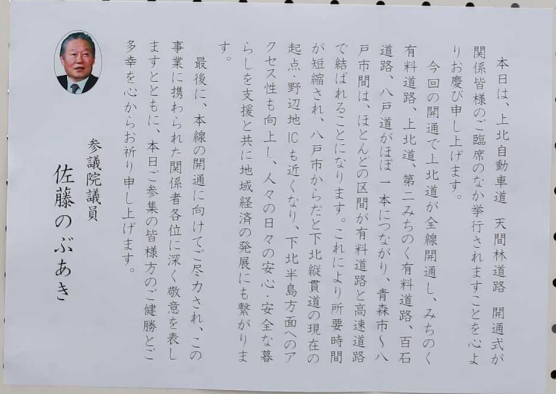 本日は、上北自動車道　天間林道路　開通式が
関係皆様のご臨席のなか挙行されますことを心よ
りお慶び申し上げます。
今回の開通で上北道が全線開通し、みちのく
有料道路、上北道、第二みちのく有料道路、百石
道路、八戸道がほぼ一本につながり、青森市～八
戸市間は、ほとんどの区間が有料道路と高速道路
で結ばれることになります。これにより所要時間
が短縮され、八戸市からだと下北縦貫道の現在の
起点・野辺地ICも近くなり、下北半島方面へのア
クセス性も向上し、人々の日々の安心・安全な暮
らしを支援と共に地域経済の発展にも繋がりま
す。
最後に、本線の開通に向けてご尽力され、この
事業に携わられた関係者各位に深く敬意を表し
ますとともに、本日ご参集の皆様方のご健勝とご
多幸を心からお祈り申し上げます。
参議院議員
佐藤のぶあき